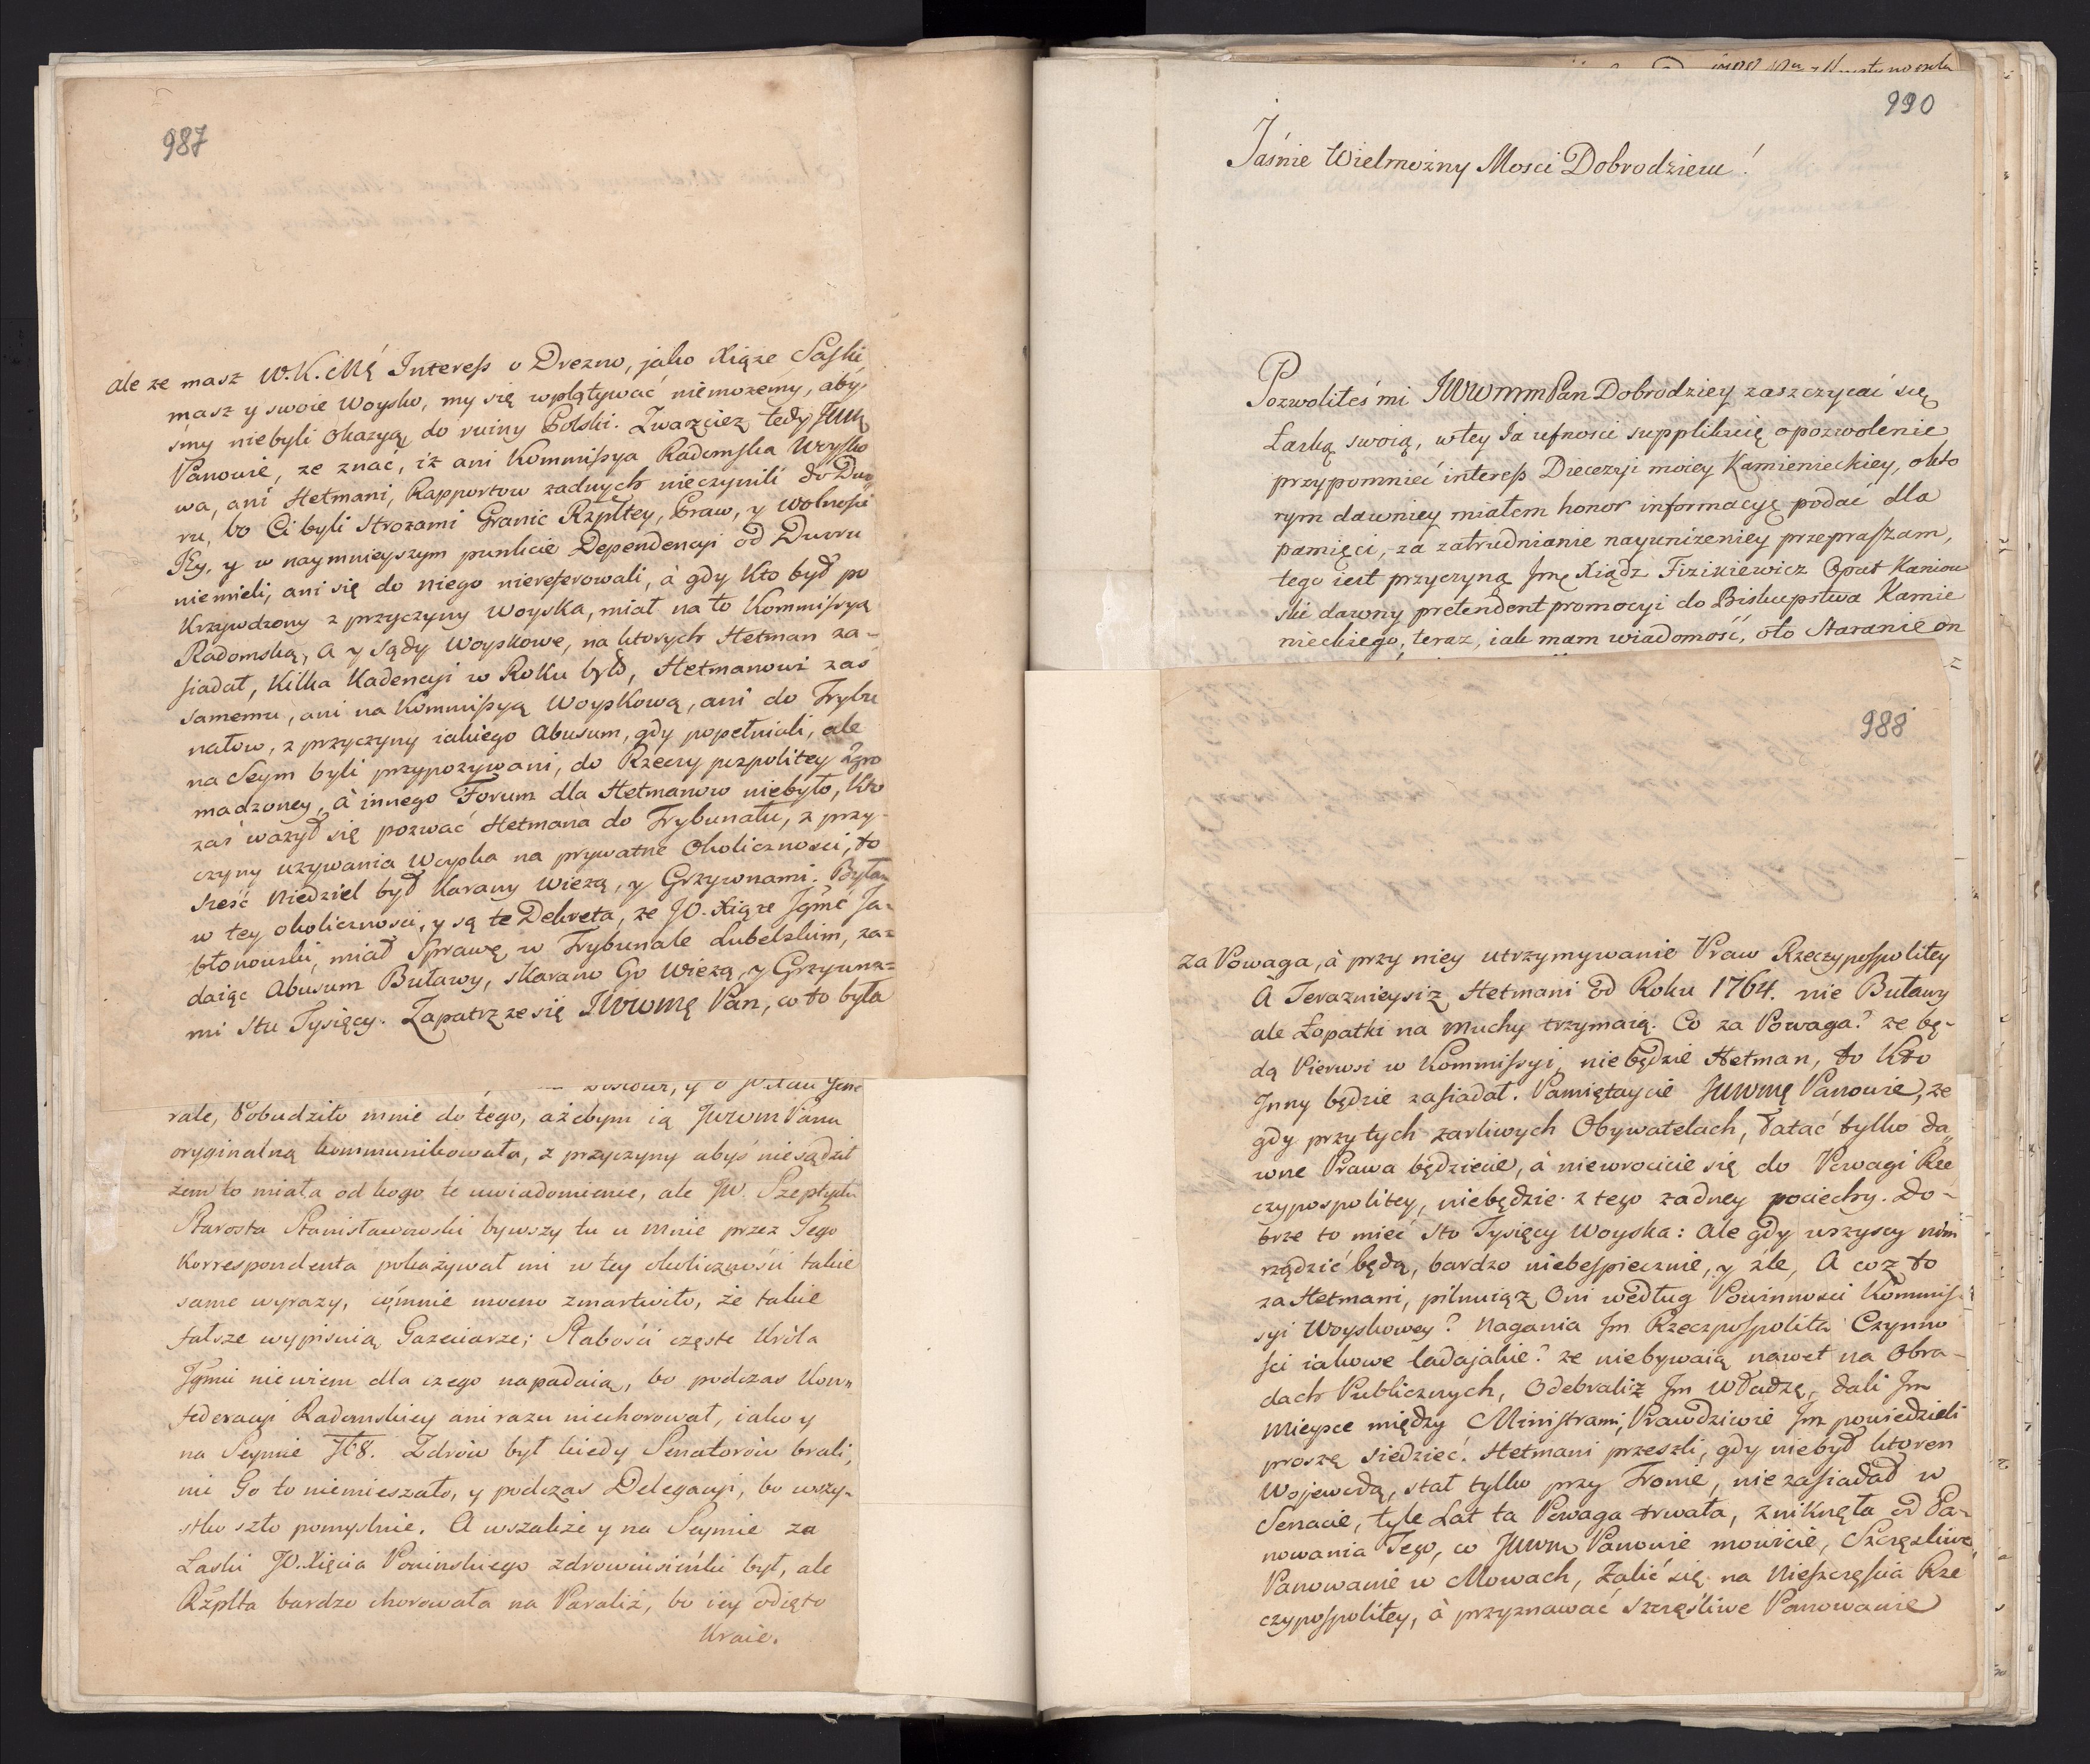 987
ale ze masz W.K.Mć Interess o Drezno, jako Xiąze Saski
masz y swoie Woysko, my się wplątywać niemozemy, aby
smy niebyli okazyą do ruiny Polski. Zwazciez tedy JWW
Panowie, ze znać, iz ani Kommissya Radomska Woysko
wa, ani Hetmani, Rapportow zadnych nieczynili do Dwo
ru, bo Ci byli Strozami Granic Rzpltey, Praw, y wolnosci
Jey, y w naymnieyszym punkcie Dependencyi od Dworu
niemieli, ani się do niego niereferowali, à gdy Kto był po
Krzywdzony z przyczyny Woyska, miał na to Kommissyą
Radomską, A y Sądy Woyskowe, na ktorych Hetman za-
siadał, Kilka Kadencyi w Roku było, Hetmanowi zas
samemu, ani na Kommissyą Woyskową, ani do Trybu
nałow, z przyczyny iakiego Abusum, gdy popełniali, ale
na Seym byli przypozywani, do Rzeczy pospolitey Zgro
madzoney, à innego Forum dla Hetmanow niebyło, Kto
zas wazył się pozwać Hetmana do Trybunału, z przy-
czyny uzywania Woyska na prywatne Okoliczności, to
szesć Niedziel był Karany Wiezą, y Grzywnami. Byłam
w tey okolicznosci, y są te Dekreta, ze JO. Xiąze Jgmć Ja-
błonowski, miał Sprawę w Trybunale Lubelskim, za-
daiąc Abusum Buławy, skarano Go Wiezą, y Grzywna-
mi Stu Tysięcy. Zapatrz ze się JWWmę Pan, co to była
rale, Pobudziło mnie do tego, ażebym ią JWWm Panu
oryginalną kommunikowała, z przyczyny abyś niesądził
żem to miała od kogo te uwiadomienie, ale JW. Szeptycki
Starosta Stanisławowski bywszy tu u mnie przez Jego
Korrespondenta pokażywał mi w tey okoliczności takie
same wyrazy, co mnie mocno zmartwiło, że takie
fałsze wypisuią Gazeciarze; Słabości częste Króla
Jgmci niewiem dla czego napadaią, bo podczas Kon-
federacyi Radomskiey ani razu niechorował, iako y
na Seymie 768. Zdrów był kiedy Senatorów brali,
nic Go to niemieszało, y podczas Delegacyi, bo wszy-
stko szło pomyslnie. A wszakże y na Seymie za
Laski JO. Xięcia Ponińskiego zdrowiusieńki był, ale
Rzplta bardzo chorowała na Paraliż, bo iey odięto
Kraie.
990
Jaśnie Wielmożny Mosci Dobrodzieiu!
Pozwoliłeś mi JWWmmPan Dobrodziey zaszczycać się
Łaską swoią, w tey Ja ufnosci supplikuię o pozwolenie
przypomnieć interess Diecezyi moiey Kamienieckiey, okto
rym dawniey miałem honor informacyę podać dla
pamięci, za zatrudnianie nayunizeniey przepraszam,
tego iest przyczyną Jmę Xiądz Fizikiewicz Opat Kaniow
ski dawny pretendent promocyi do Biskupstwa Kamie
nieckiego, teraz, iak mam wiadomość, oto Staranie on
988
za Powaga, à przy niey utrzymywanie Praw Rzeczypospolitey
À Teraznieysiz Hetmani od Roku 1764. nie Buławy
ale Łopatki na Muchy trzymaią. Co za Powaga? ze bę-
dą Pierwsi w Kommissyi, niebędzie Hetman, to Kto
Jnny będzie zasiadał. Pamiętaycie JWWmę Panowie, ze
gdy przy tych zarliwych Obywatelach, łatać tylko da
wne Prawa będziecie, à niewrocicie się do Powagi Rze
czypospolitey, niebędzie z tego zadney pociechy. Do-
brze to mieć sto Tysięcy Woyska: Ale gdy wszyscy nim
rządzić będą, bardzo niebespiecznie, y zle, A coz to
za Hetmani, pilnuiąz Oni według Powinności Kommis-
syi Woyskowey? Nagania Jm Rzeczpospolita Czynno
sci iakowe ladajakie? ze niebywaią nawet na Obra-
dach Publicznych, Odebraliz Jm Władzę, dali Jm
Mieysce między Ministrami, Prawdziwie Jm powiedzieli
proszę siedzieć. Hetmani przeszli, gdy niebył ktoren
Wojewodą, stał tylko przy Tronie, nie zasiadał w
Senacie, tyle Lat ta Powaga trwała, zniknęła od Pa-
nowania Tego, co JWWm Panowie mowicie, Szczęsliwe
Panowanie w Mowach, Zalić się na Nieszczęscia Rze
czypospolitey, à przyznawać szczęśliwe Panowanie